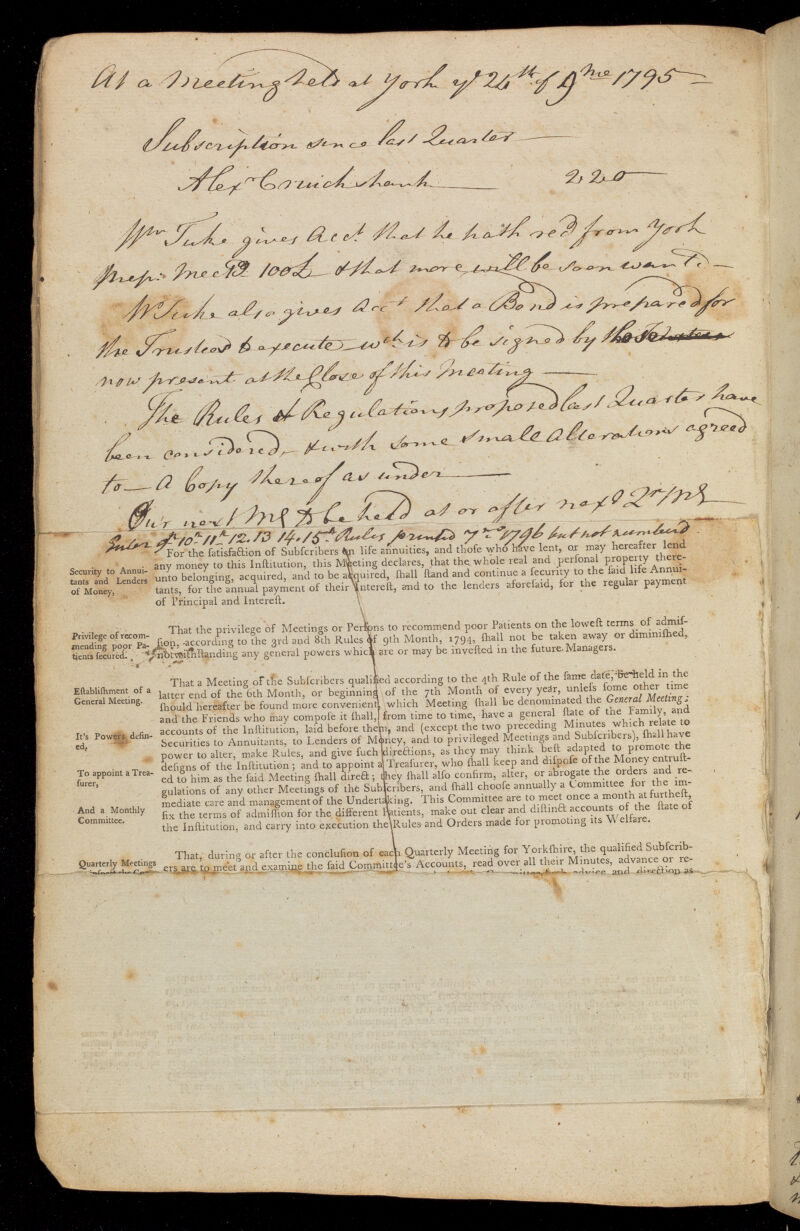 At a Meeting held at York ye 24th of 9mo 1795
Subscription since last Quarter
Alexr Cruickshank 2 2 0
Wm Tuke gives Acct. that he hath recd from York
Prep: Meetg 100£ & that more will be soon wantd
W Tuke also gives Acct that a Bond is prepared for
the Trustees to execute wch is to be signed by
now present at the Close of this Meeting
The Rules & Regulations proposed last Quarter have
been considered, & with some small Alterations agreed
to — A Copy thereof as under
Our next Mg to be held at or after next Qr Mg
9th 10th 11th 12. 13 14. 15th Rules printed 7mo 1796 but not numberd
For the ſatisfaction of Subſcribers on life annuities, and thoſe who have lent, or may hereafter lend
Security to Annui- any money to this Inſtitution, this Meeting declares, that the whole real and perſonal property there-
tants and Lenders unto belonging, acquired, and to be acquired, ſhall ſtand and continue a ſecurity to the ſaid life Annui-
of Money, tants, for the annual payment of their Intereſt, and to the lenders aforeſaid, for the regular payment
of Principal and Intereſt.
That the privilege of Meetings or Perſons to recommend poor Patients on the loweſt terms of admiſ-
Privilege of recom- ſion, according to the 3rd and 8th Rules of 9th Month, 1794, ſhall not be taken away or diminiſhed,
mending poor Pa- notwithſtanding any general powers which are or may be inveſted in the future Managers.
tients ſecured.
That a Meeting of the Subſcribers qualified according to the 4th Rule of the ſame date, be held in the
Eſtabliſhment of a latter end of the 6th Month, or beginning of the 7th Month of every year, unleſs ſome other time
General Meeting. ſhould hereafter be found more convenient, which Meeting ſhall be denominated the General Meeting;
and the Friends who may compoſe it ſhall, from time to time, have a general ſtate of the Family, and
It's Powers defin- accounts of the Inſtitution, laid before them, and (except the two preceding Minutes which relate to
ed, Securities to Annuitants, to Lenders of Money, and to privileged Meetings and Subſcribers), ſhall have
power to alter, make Rules, and give ſuch directions, as they may think beſt adapted to promote the
To appoint a Trea- deſigns of the Inſtitution; and to appoint a Treaſurer, who ſhall keep and diſpoſe of the Money entruſt-
ſurer, ed to him as the ſaid Meeting ſhall direct; they ſhall alſo confirm, alter, or abrogate the orders and re-
gulations of any other Meetings of the Subſcribers, and ſhall chooſe annually a Committee for the im-
And a Monthly mediate care and management of the Undertaking. This Committee are to meet once a month at furtheſt,
Committee. fix the terms of admiſſion for the different Patients, make out clear and diſtinct accounts of the ſtate of
the Inſtitution, and carry into execution the Rules and Orders made for promoting its Welfare.
That, during or after the concluſion of each Quarterly Meeting for Yorkſhire, the qualified Subſcrib-
Quarterly Meetings ers are to meet and examine the ſaid Committee's Accounts, read over all their Minutes, advance or re-
advice and direction as